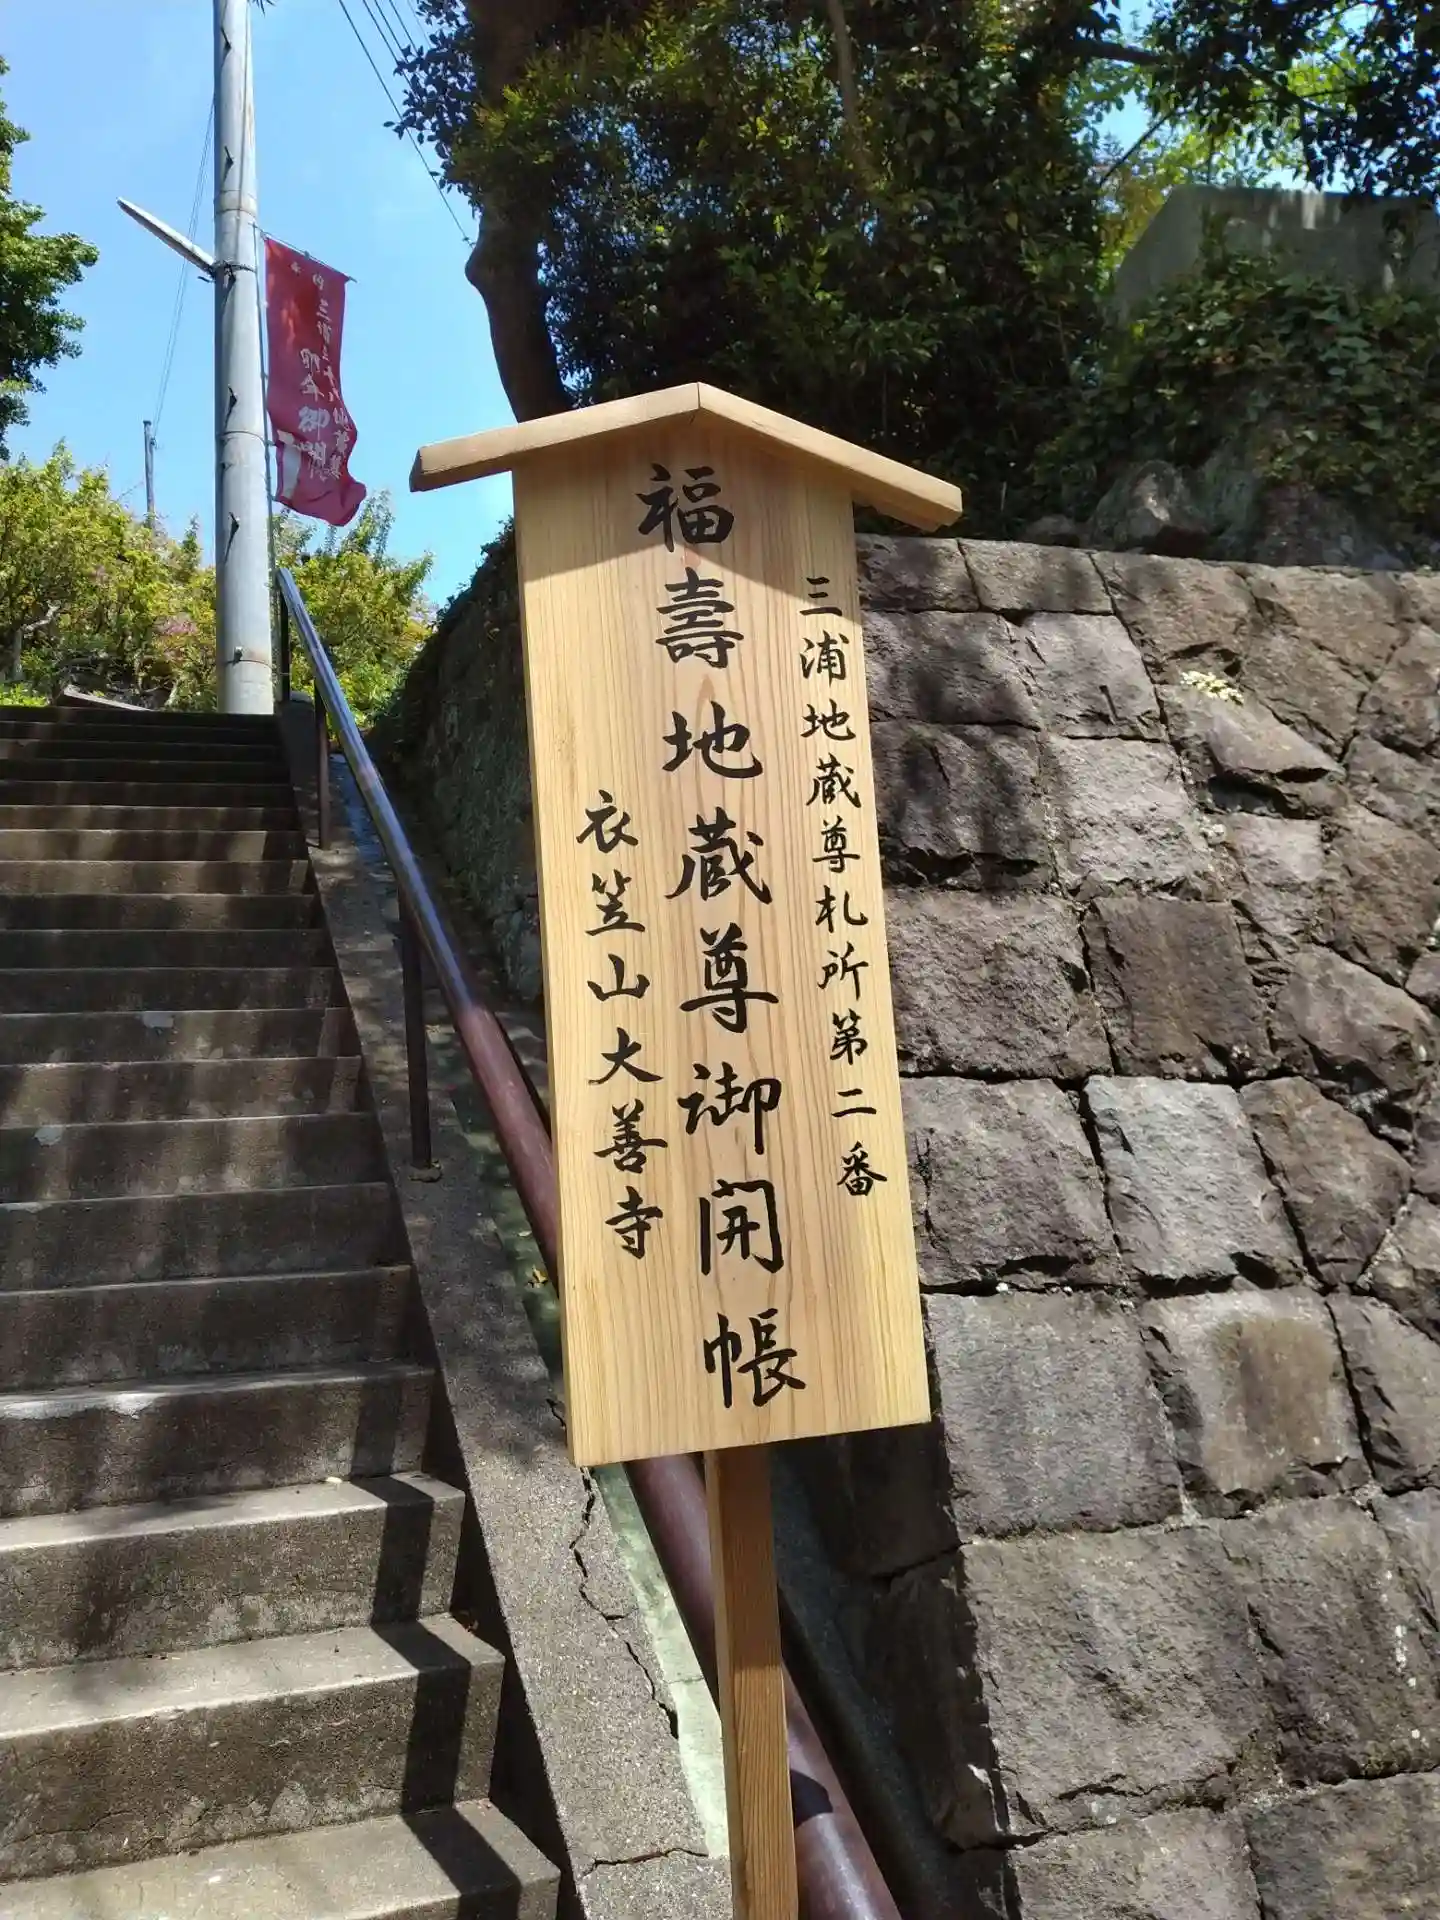 三浦地蔵尊札所第二番
福壽地蔵尊御開帳
衣笠山大善寺
三浦三十八地蔵尊
御開帳